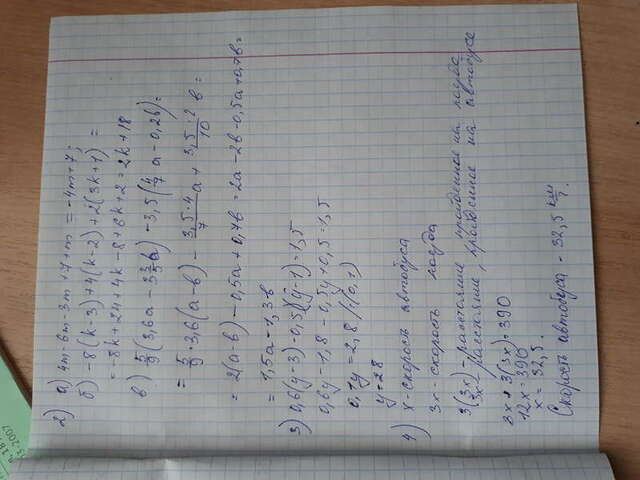 2) а) 4m - 6m - 3m + 7 + m = -4m + 7;
б) -8(k-3) + 4(k-2) + 2(3k+1) =
= -8k + 24 + 4k - 8 + 6k + 2 = 2k + 18
в) 5/9 (3,6a - 3 3/5 b) - 3,5(4/7 a - 0,2b) =
= 5/9 · 3,6(a-b) - 3,5·4/7 a + 3,5·2/10 b =
= 2(a-b) - 0,5a + 0,7b = 2a - 2b - 0,5a + 0,7b =
= 1,5a - 1,3b
3) 0,6(y-3) - 0,5(y-1) = 1,5
0,6y - 1,8 - 0,5y + 0,5 = 1,5
0,1y = 2,8 | (:0,1)
y = 28
4) x - скорость автобуса
3x - скорость
3(3x) - расстояние пройденное на
расстояние, на автобусе
3(3x) = 390
12x = 390
x = 32,5.
Скорость автобуса - 32,5 км/ч.
2007